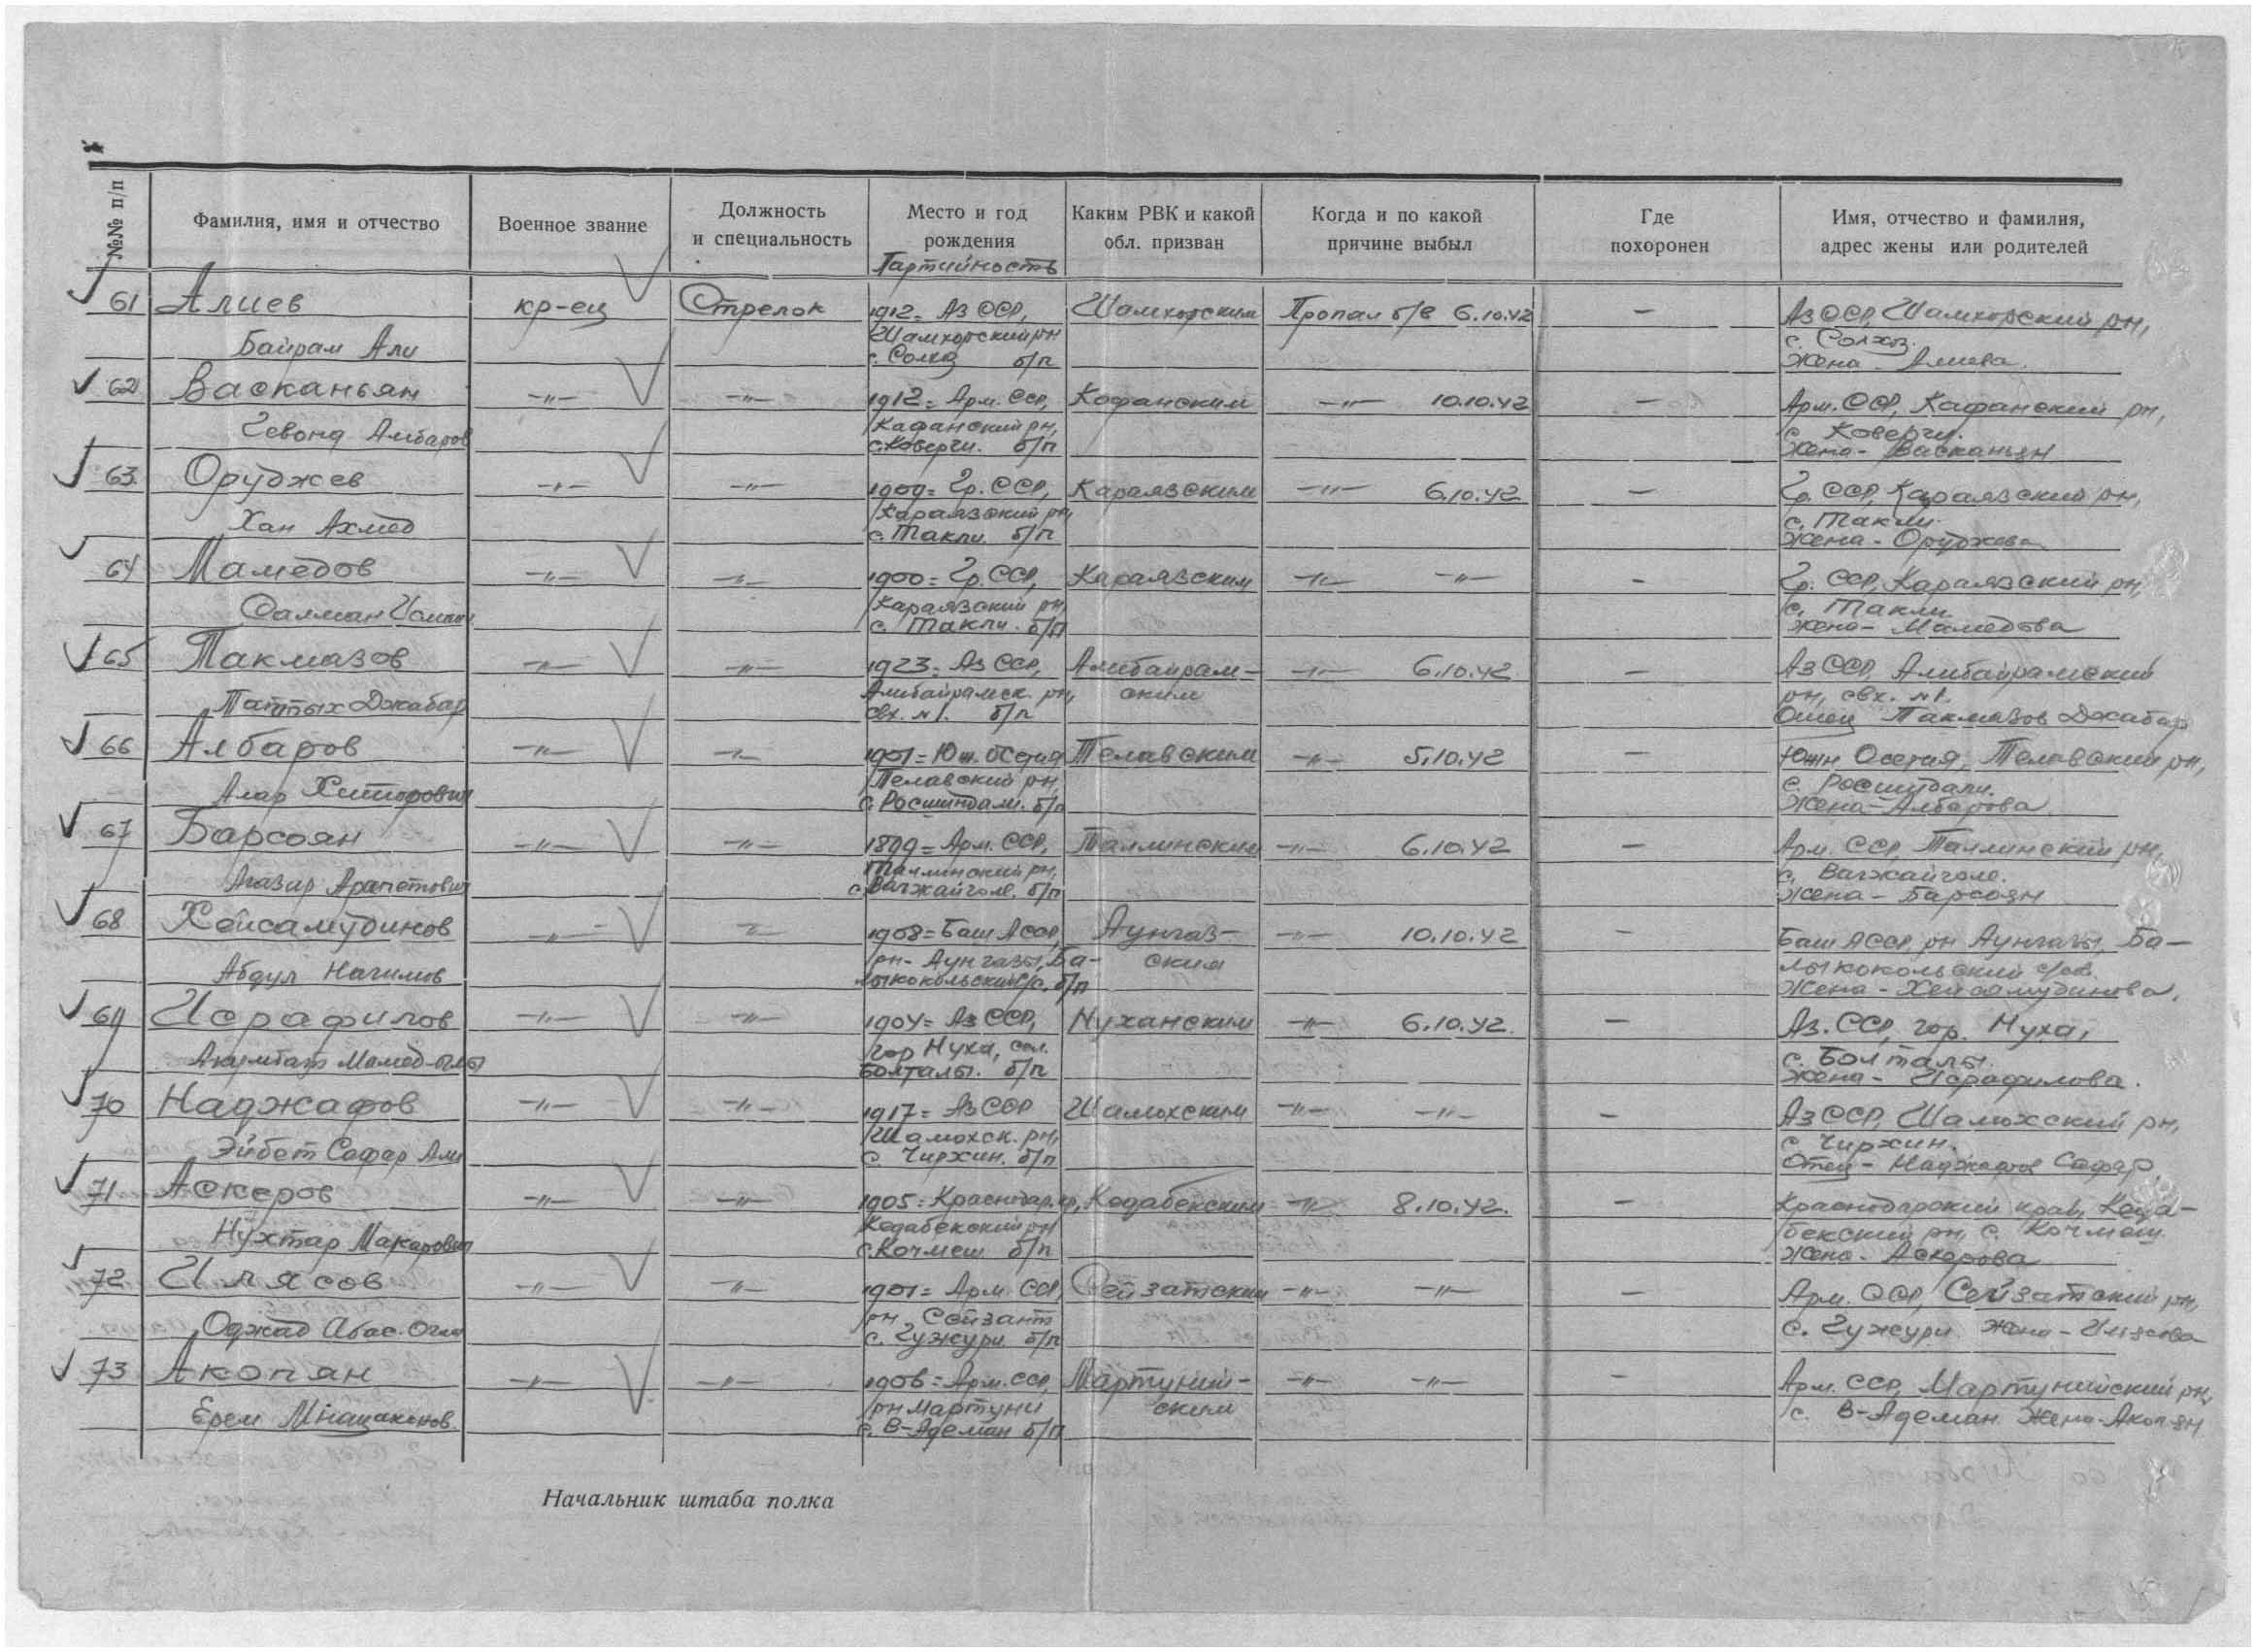 №№ п/п
Фамилия, имя и отчество
Военное звание
Должность
и специальность
Место и год
рождения
Партийность
Каким РВК и какой
обл. призван
Когда и по какой
причине выбыл
Где
похоронен
Имя, отчество и фамилия,
адрес жены или родителей
61 Алиев кр-ец Стрелок 1912= Аз ССР, Шамхорским Пропал б/в 6.10.42 — Аз ССР, Шамхорский рн,
Байрам Али Шамхорский рн с.
с. б/п Жена - Алиева
62 Васканьян -"- -"- 1912= Арм. ССР, Кафанским -"- 10.10.42 — Арм. ССР, Кафанский рн,
Гевонд Амбаров Кафанский рн, с. Коверчи.
с. Коверчи. б/п Жена - Васканьян
63. Оруджев -"- -"- 1909= Гр. ССР, Караязским -"- 6.10.42 — Гр. ССР, Караязский рн,
Хан Ахмед Караязский рн, с. Такли.
с. Такли б/п Жена - Оруджева
64 Мамедов -"- -"- 1900= Гр. ССР, Караязским -"- -"- — Гр. ССР, Караязский рн,
Салман Караязский рн, с. Такли.
с. Такли. б/п Жена - Мамедова
65 Такмазов -"- -"- 1923= Аз ССР, Алибайрам- -"- 6.10.42 — Аз ССР, Алибайрамский
Джабар Алибайрамск. рн, ским рн, свх. №1.
свх. №1. б/п Отец Такмазов Джабар
66 Албаров -"- -"- 1901= Юж. Осетия Телавским -"- 5.10.42 — Южн Осетия, Телавский рн,
Телавский рн, с.
с. б/п Жена - Албарова
67 Барсоян -"- -"- 1899= Арм. ССР, Таллинским -"- 6.10.42 — Арм. ССР, Таллинский рн,
Агазар Арапетович Таллинский рн, с. Вагжайголе.
с. Вагжайголе. б/п Жена - Барсоян
68 Хейсамудинов -"- -"- 1908= Баш АССР, Аунгаз- -"- 10.10.42 — Баш АССР, рн Аунгазы, Ба-
Абдул Нагимов рн- Аунгазы, Ба- ским лыкокольский
лыкокольский с/с. б/п Жена - Хейсамудинова.
69 Исрафилов -"- -"- 1904= Аз ССР, Нуханским -"- 6.10.42. — Аз. ССР, гор. Нуха,
Мамед-оглы гор Нуха, сел. с. Болталы.
Болталы. б/п Жена - Исрафилова.
70 Наджафов -"- -"- 1917= Аз ССР Шамохским -"- -"- — Аз ССР, Шамохский рн,
Эйбат Сафар Али Шамохск. рн, с. Чирхин.
с. Чирхин. б/п Отец - Наджафов Сафар
71 Аскеров -"- -"- 1905= Краснодар. кр, Кедабекским -"- 8.10.42. — Краснодарский край, Кеда-
Нухтар Макарович Кедабекский рн бекский рн, с. Кочмеш
с. Кочмеш б/п Жена - Аскерова
72 Илясов -"- -"- 1901= Арм. ССР, Сейзатским -"- -"- — Арм. ССР, Сейзатский рн,
Оджад Абас-Оглы рн. Сейзат с. Гужури Жена - Илясова
с. Гужури б/п
73 Акопян -"- -"- 1906= Арм. ССР, Мартуний- -"- -"- — Арм. ССР, Мартунийский рн,
Ерем Мнацаканов. рн Мартуни ским с. В-Адеман. Жена - Акопян
с. В-Адеман б/п
Начальник штаба полка